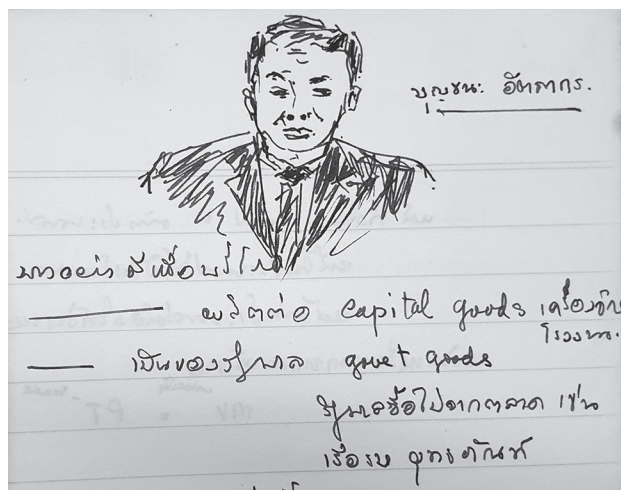 บุญชนะ อัตถากร.
บางอย่าง เพื่อบริโภค
ผลิตต่อ capital goods เครื่องจักร
โรงงาน.
เป็นของรัฐบาล govet goods
รัฐบาลซื้อไปจากตลาด เช่น
เรือรบ ยุทธภัณฑ์